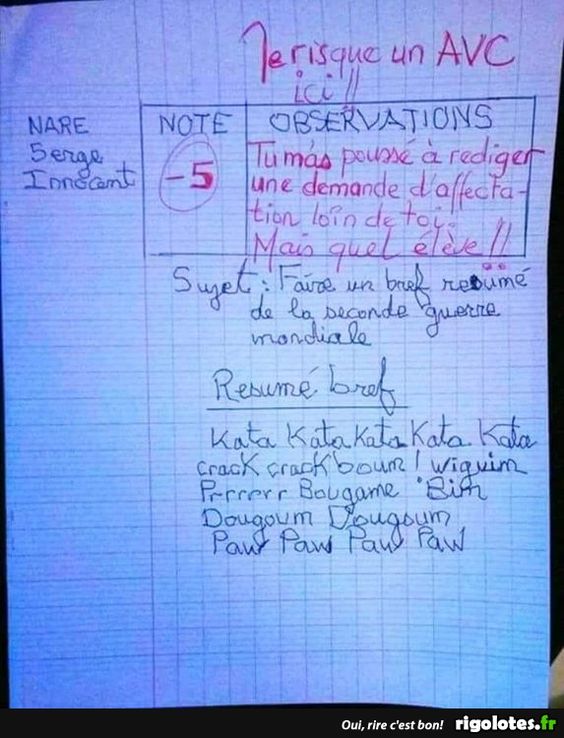 Je risque un AVC
ici !!
NARE
Serge
Innocent
NOTE
-5
OBSERVATIONS
Tu m'as poussé à rediger
une demande d'affecta-
tion loin de toi.
Mais quel élève !!
Sujet : Faire un bref resumé
de la seconde guerre
mondiale
Resumé bref
Kata Kata Kata Kata Kata
crack crack boum ! wiquim
Prrrerr Bougame Bim
Dougoum Dougoum
Paw Paw Paw Paw
Oui, rire c'est bon! rigolotes.fr